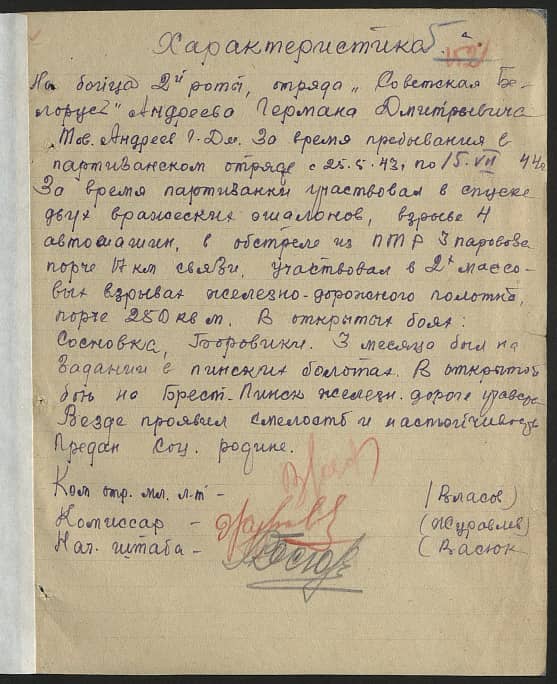 Характеристика
На бойца 2й роты, отряда „Советская Бе-
лорусь" Андреева Германа Дмитриевича
Тов. Андреев Г. Дм. За время пребывания в
партизанском отряде с 25.5.43г по 15.VII 44г
За время партизанки участвовал в спуске
двух вражеских эшалонов, взрыве 4
автомашин, в обстреле из ПТР 3 паровоза
порче 17 км связи, участвовал в 2х массо-
вых взрывах железно-дорожного полотна,
порче 280 кв м. В открытых боях:
Сосновка, Боровики. 3 месяца был на
задании в пинских болотах. В открытом
бою на Брест-Пинск железн. дороге
Везде проявил смелость и настойчивость
Предан Соц. родине.
Ком отр. мл. л-т - (Власов)
Комиссар - (Журавлев)
Нач. штаба - (Васюк